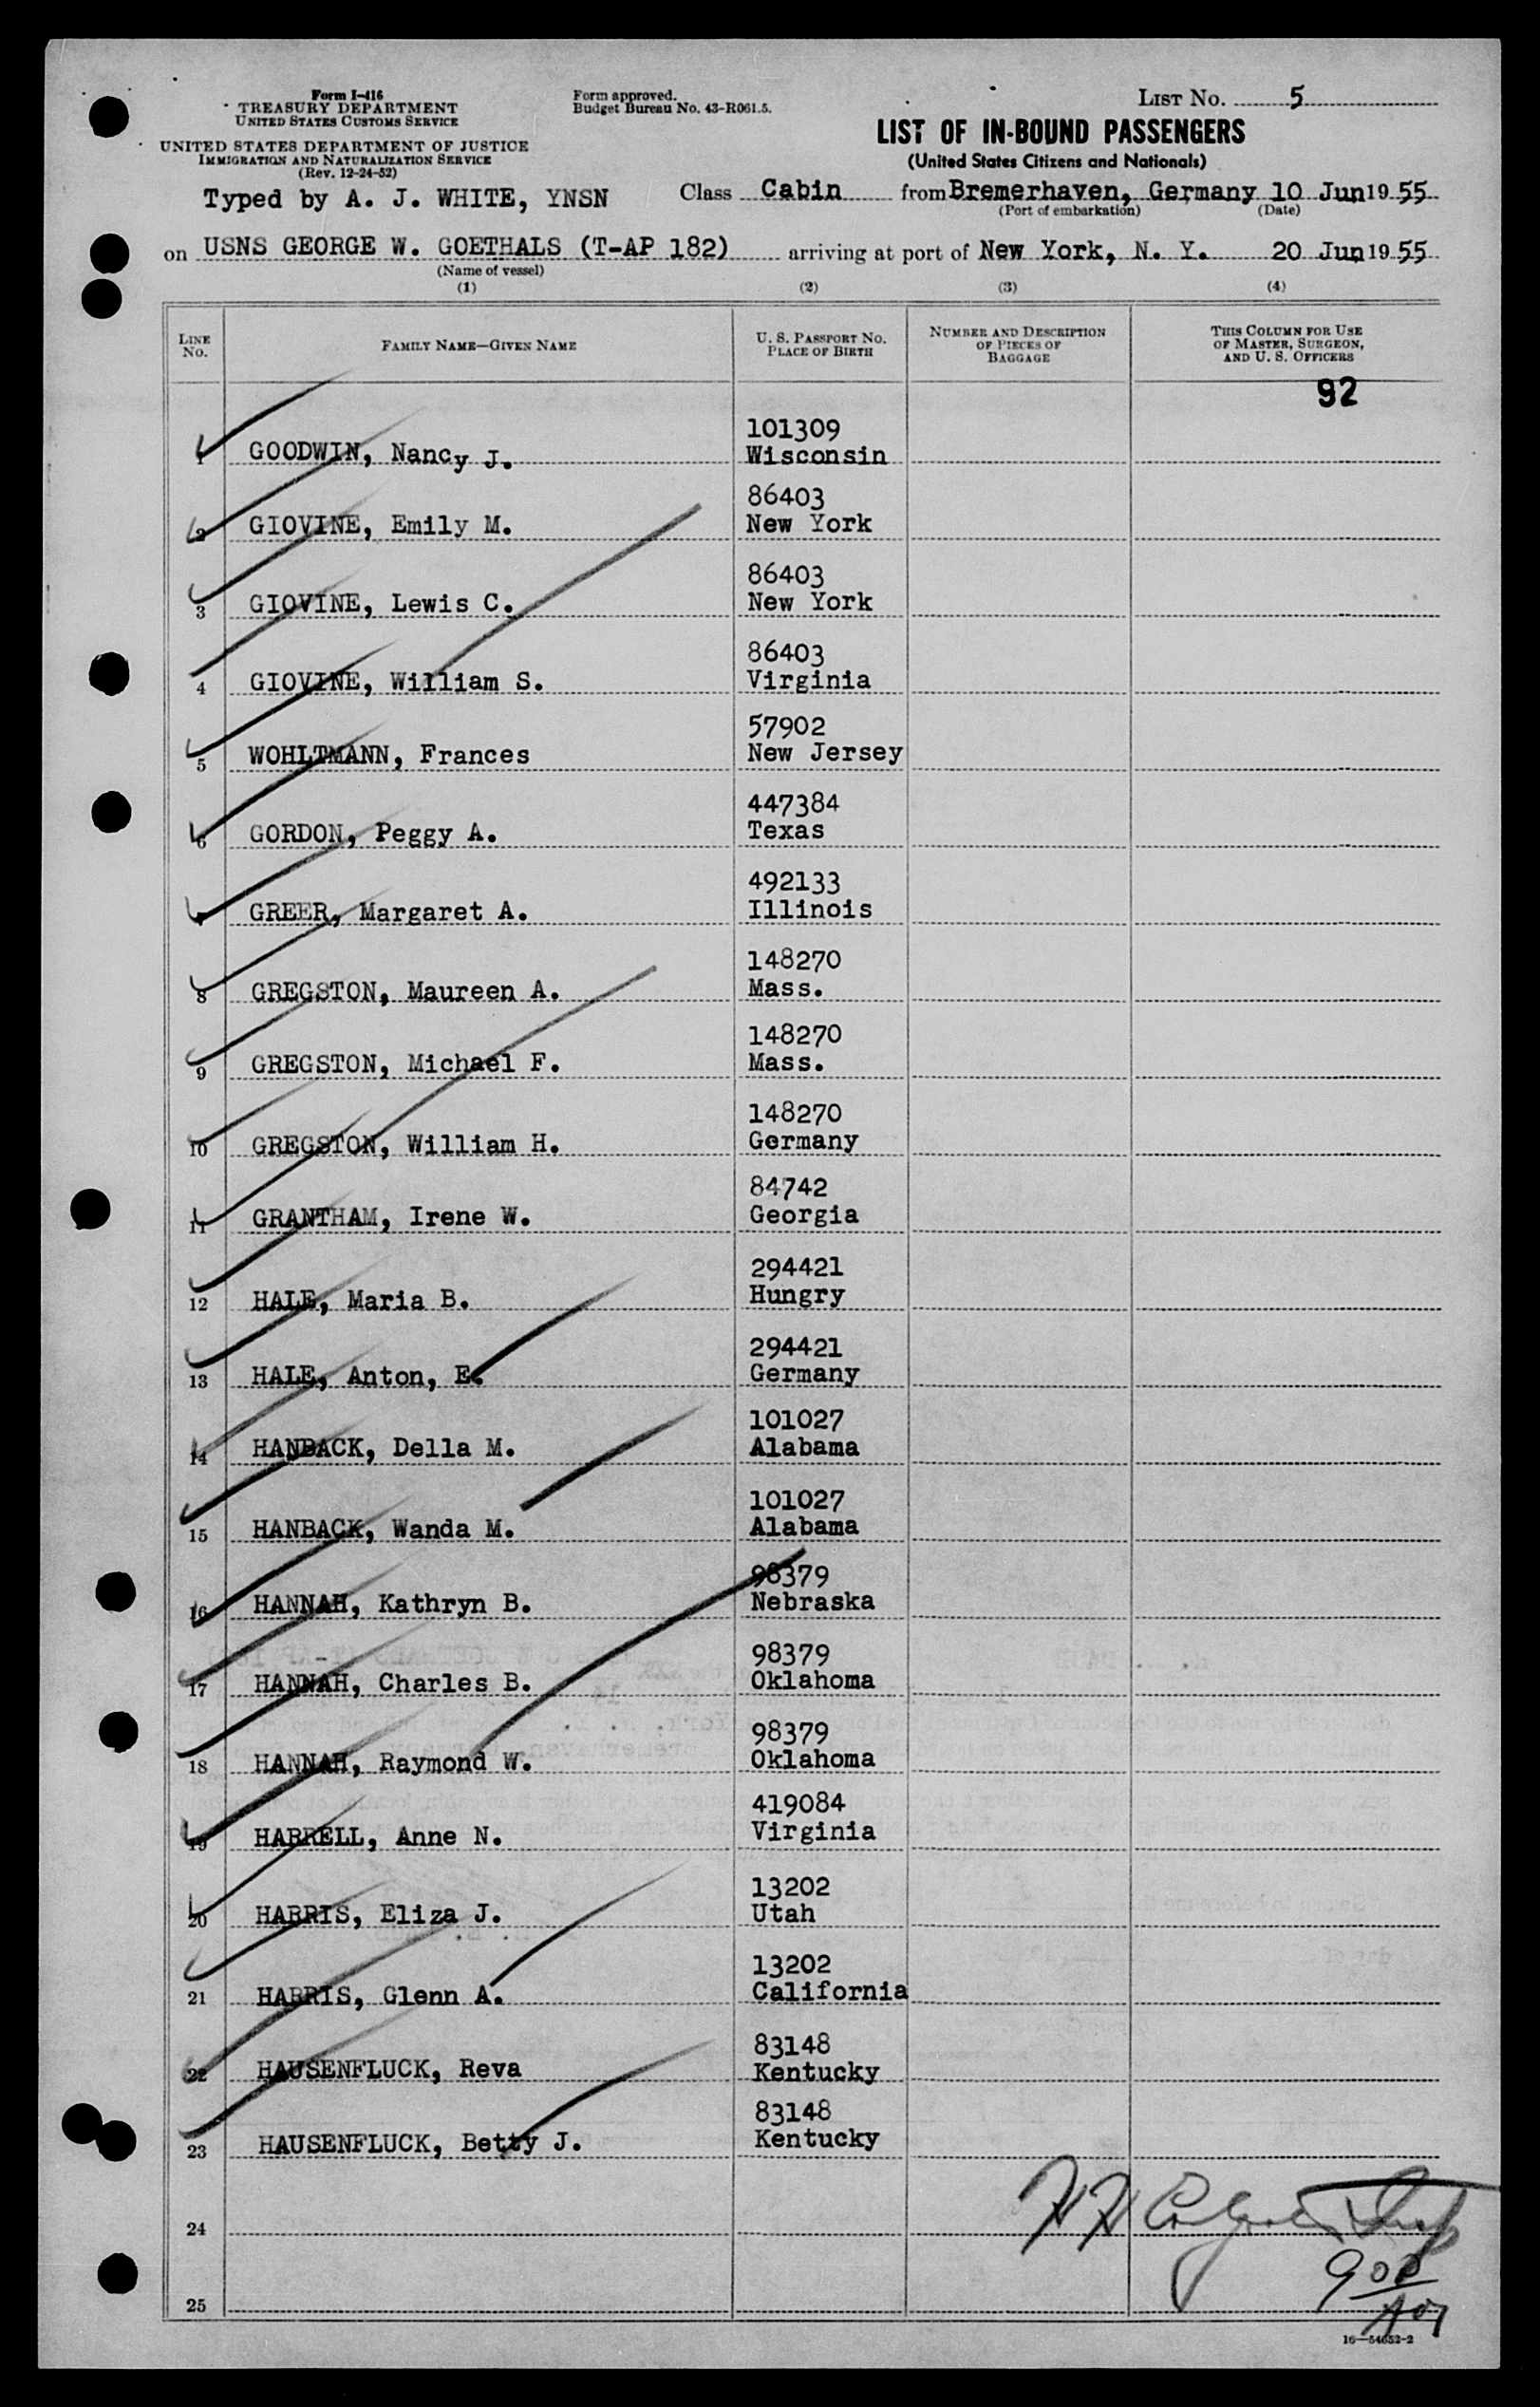 Form I-416
TREASURY DEPARTMENT
UNITED STATES CUSTOMS SERVICE
UNITED STATES DEPARTMENT OF JUSTICE
IMMIGRATION AND NATURALIZATION SERVICE
(Rev. 12-24-52)
Typed by A. J. WHITE, YNSN
Form approved.
Budget Bureau No. 43-R061.5.
LIST No. 5
LIST OF IN-BOUND PASSENGERS
(United States Citizens and Nationals)
Class Cabin from Bremerhaven, Germany 10 Jun 19 55
(Port of embarkation) (Date)
on USNS GEORGE W. GOETHALS (T-AP 182) arriving at port of New York, N. Y. 20 Jun 19 55
(Name of vessel)
(1) (2) (3) (4)
LINE No. FAMILY NAME—GIVEN NAME U. S. PASSPORT No. PLACE OF BIRTH NUMBER AND DESCRIPTION OF PIECES OF BAGGAGE THIS COLUMN FOR USE OF MASTER, SURGEON, AND U. S. OFFICERS
92
101309
1 GOODWIN, Nancy J. Wisconsin
86403
2 GIOVINE, Emily M. New York
86403
3 GIOVINE, Lewis C. New York
86403
4 GIOVINE, William S. Virginia
57902
5 WOHLTMANN, Frances New Jersey
447384
6 GORDON, Peggy A. Texas
492133
7 GREER, Margaret A. Illinois
148270
8 GREGSTON, Maureen A. Mass.
148270
9 GREGSTON, Michael F. Mass.
148270
10 GREGSTON, William H. Germany
84742
11 GRANTHAM, Irene W. Georgia
294421
12 HALE, Maria B. Hungry
294421
13 HALE, Anton, E. Germany
101027
14 HANBACK, Della M. Alabama
101027
15 HANBACK, Wanda M. Alabama
98379
16 HANNAH, Kathryn B. Nebraska
98379
17 HANNAH, Charles B. Oklahoma
98379
18 HANNAH, Raymond W. Oklahoma
419084
19 HARRELL, Anne N. Virginia
13202
20 HARRIS, Eliza J. Utah
13202
21 HARRIS, Glenn A. California
83148
22 HAUSENFLUCK, Reva Kentucky
83148
23 HAUSENFLUCK, Betty J. Kentucky
24
25
16—54652-2